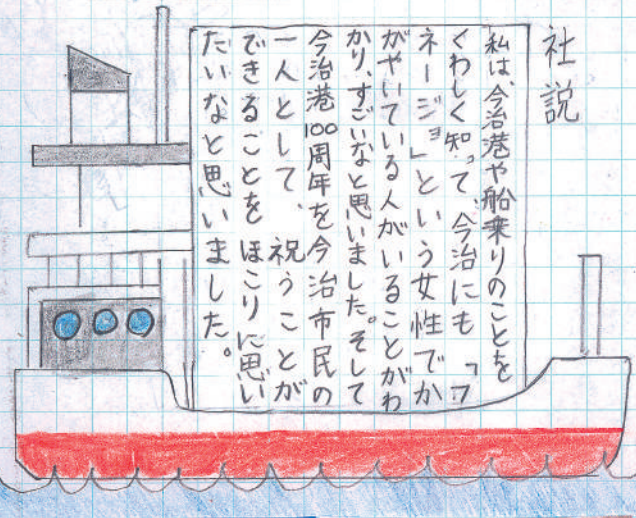 社説
私は、今治港や船乗りのことを
くわしく知って、今治にも「フ
ネージョ」という女性でか
がやいている人がいることがわ
かり、すごいなと思いました。そして
今治港100周年を今治市民の
一人として、祝うことが
できることをほこりに思い
たいなと思いました。